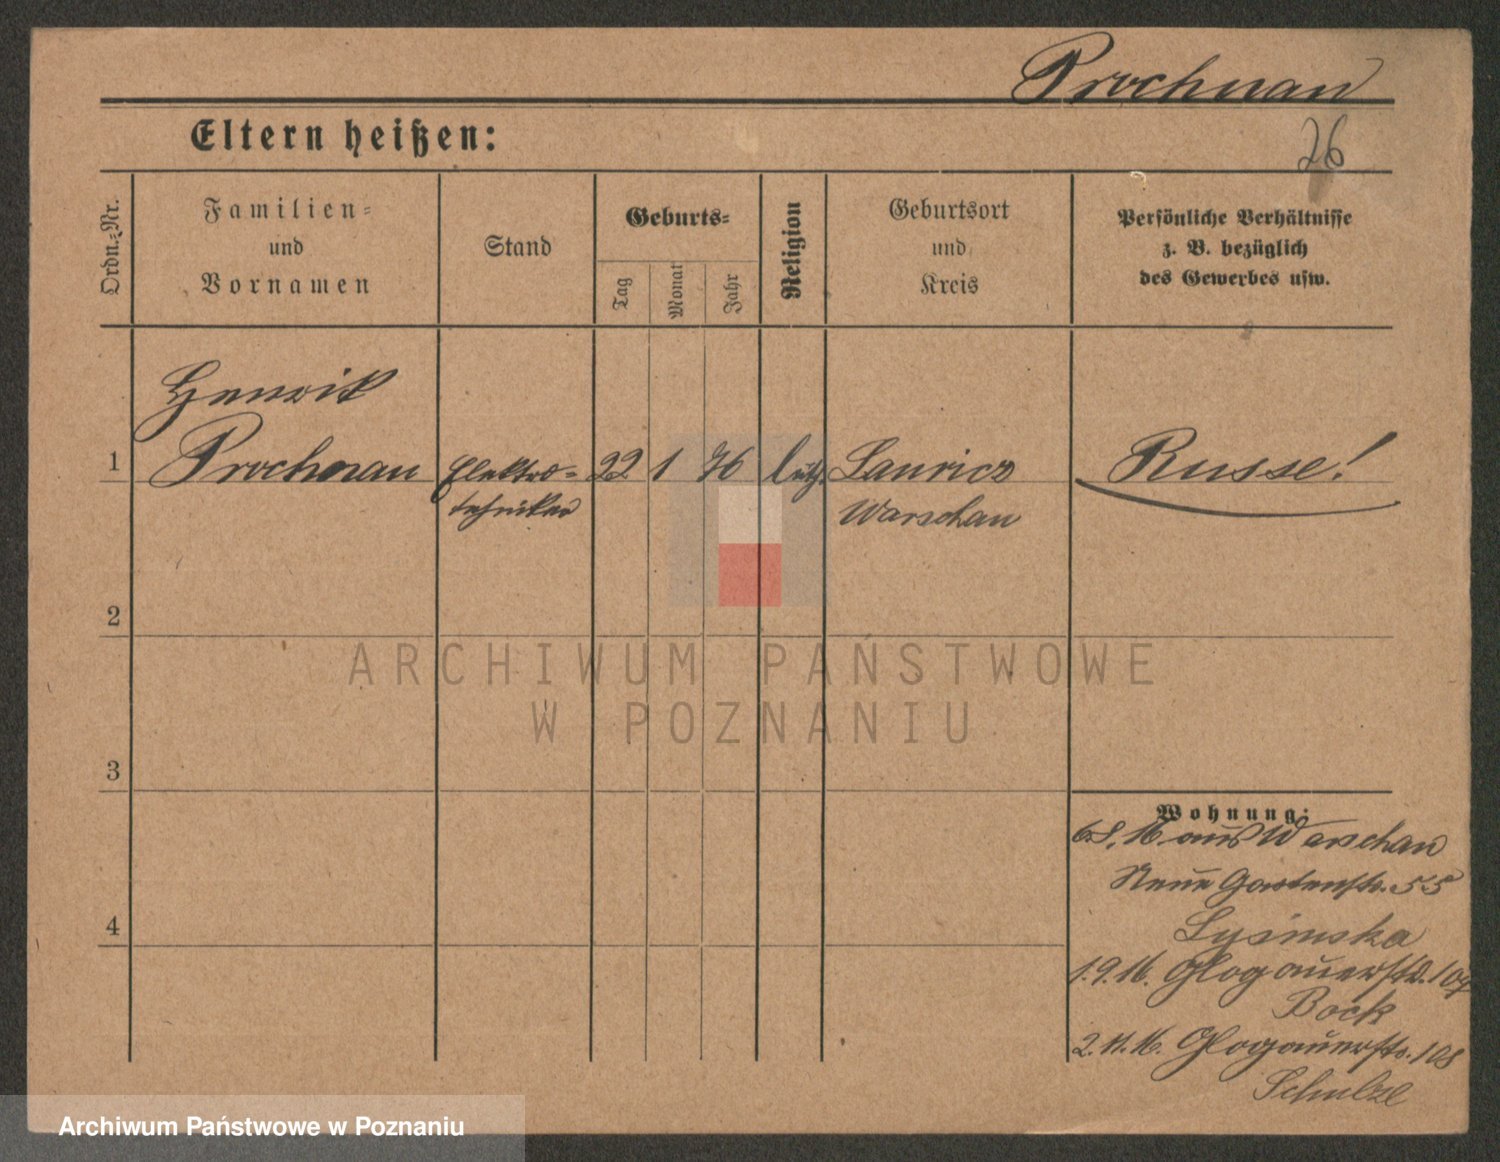 Prochnau
Eltern heißen:
26
Ordn.-Nr.
Familien-
und
Vornamen
Stand
Geburts-
Tag
Monat
Jahr
Religion
Geburtsort
und
Kreis
Persönliche Verhältnisse
z. B. bezüglich
des Gewerbes usw.
Henrik
1 Prochnau Elektro- 22 1 76 luth. Lauricz Russe!
techniker Warschau
2
ARCHIWUM PAŃSTWOWE
W POZNANIU
3
Wohnung:
16 aus Warschau
Neue Gartenstr. 55
Lysinska
1.9.16. Glogauerstr. 109
Bock
4
2.11.16. Glogauerstr. 108
Schulze
Archiwum Państwowe w Poznaniu